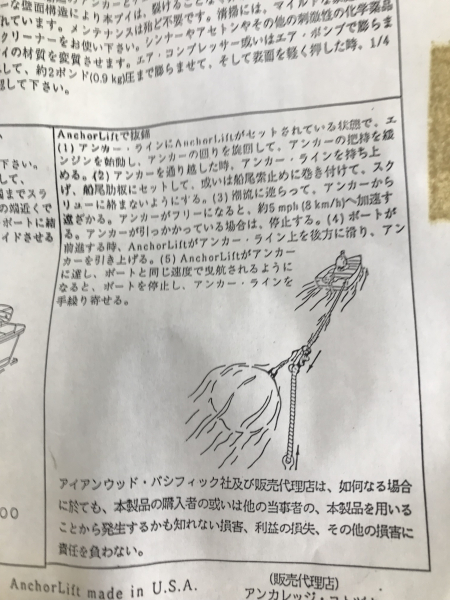 な壁面構造により本ブイは、裂けることな
れています。メンテナンスは殆ど不要です。清掃には、マイルドな
クリーナーをお使い下さい。シンナーやアセトンやその他の刺激性の化学薬品
イの材質を変質させます。エア・コンプレッサー或いはエア・ポンプで膨らま
して、約2ポンド(0.9 kg)圧まで膨らませて、そして表面を軽く押した時、1/4
認して下さい。
下さい。
して、
までスラ
の端近くで
ボートに結
イドさせる
AnchorLiftで抜錨
(1) アンカー・ラインにAnchorLiftがセットされている状態で、エ
ンジンを始動し、アンカーの回りを旋回して、アンカーの把持を緩
める。(2) アンカーを通り越した時、アンカー・ラインを持ち上
げ、船尾肋板にセットして、或いは船尾索止めに巻き付けて、スク
リューに絡まないようにする。(3) 潮流に逆らって、アンカーから
遠ざかる。アンカーがフリーになると、約5 mph (8 km/h)へ加速す
る。アンカーが引っかかっている場合は、停止する。(4) ボートが
前進する時、AnchorLiftがアンカー・ライン上を後方に滑り、アン
カーを引き上げる。(5) AnchorLiftがアンカー
に達し、ボートと同じ速度で曳航されるように
なると、ボートを停止し、アンカー・ラインを
手繰り寄せる。
アイアンウッド・パシフィック社及び販売代理店は、如何なる場合
に於ても、本製品の購入者の或いは他の当事者の、本製品を用いる
ことから発生するかも知れない損害、利益の損失、その他の損害に
責任を負わない。
00
AnchorLift made in U.S.A.
(販売代理店)
アンカレッジ・